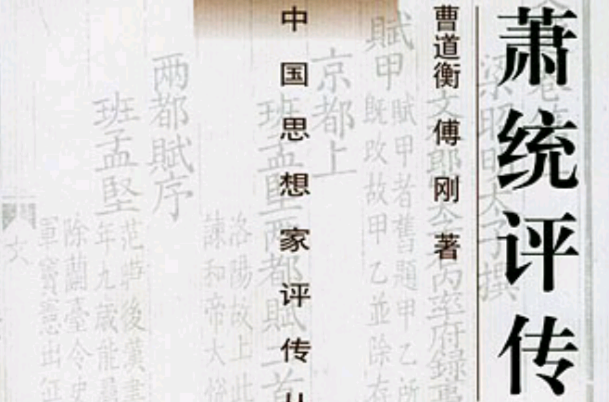 萧统评传
曹道衡 傅刚 著
中国思想家评传丛
賦甲
賦甲者舊題甲乙所
旣改故甲乙並除存
京都上
班孟堅兩都賦二首
两都賦序
班孟堅
范曄後漢書
年九歲能屬
除蘭臺令史
軍竇憲出征
洛陽故上此
諫和帝大悦
六